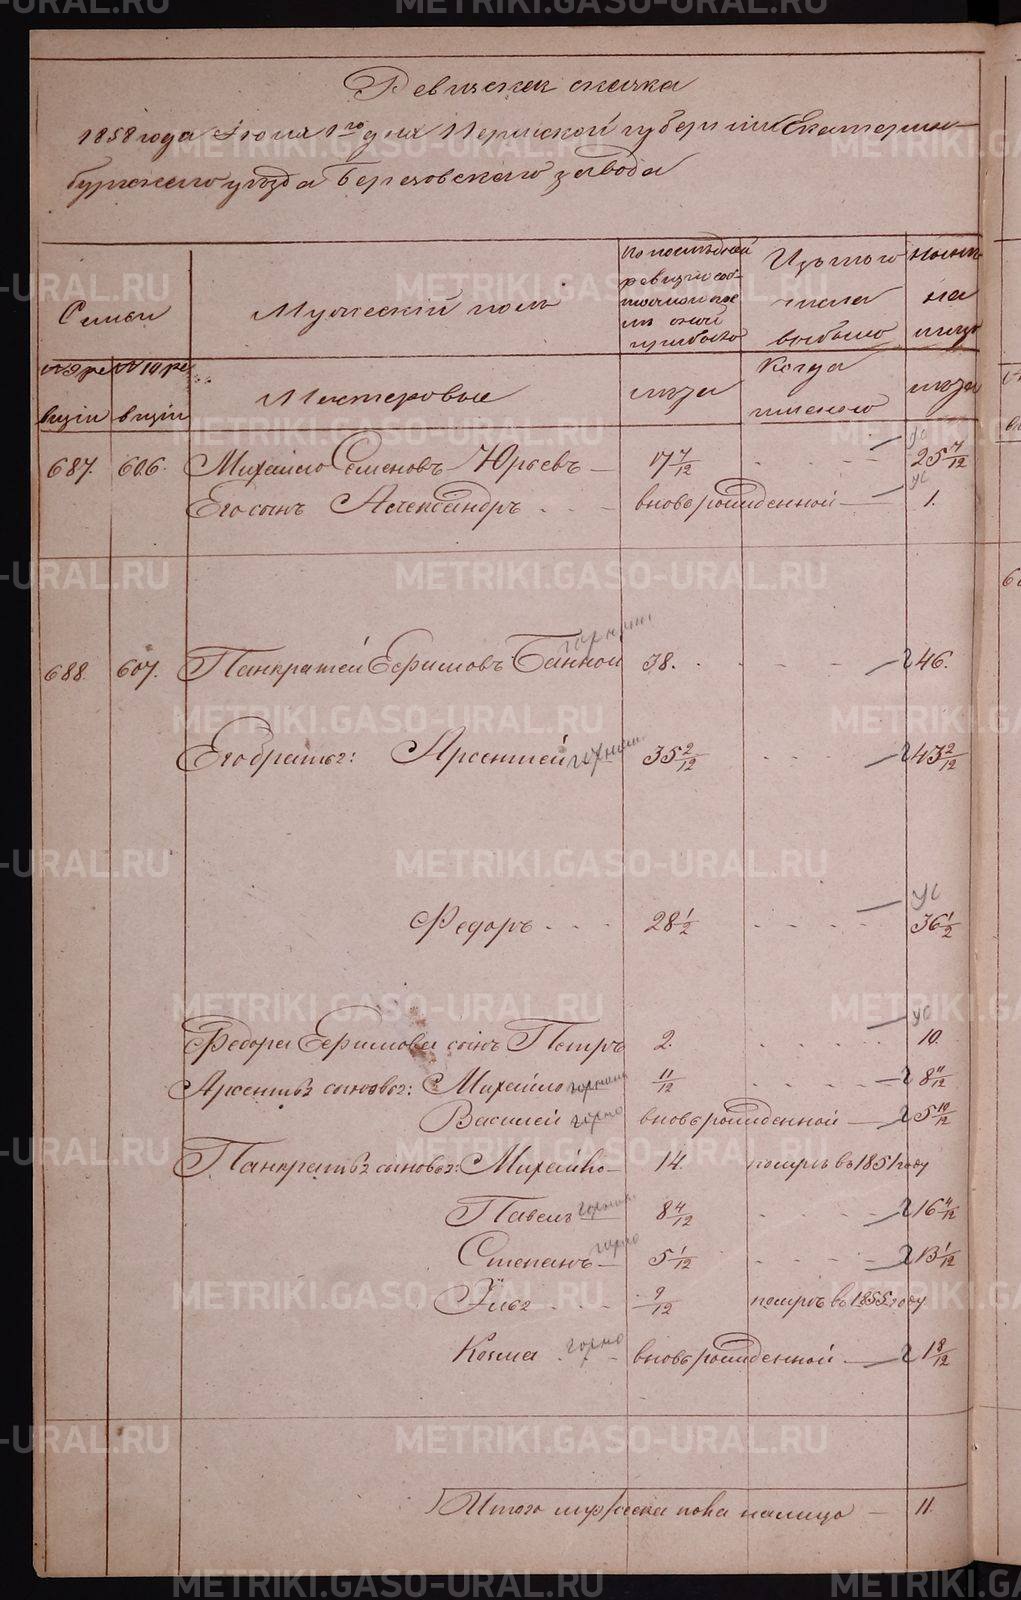 Ревизская сказка
1858 года Июня 1го дня Пермской губернии Екатерин-
бургскаго уѣзда Березовскаго завода
Семьи
Мужескій полъ
По послѣдней
ревизіи сос-
тояло и пос-
лѣ оной
прибыло
Изъ того
числа
выбыло
Нынѣ
на
лицо
№ 9 ре
визіи
№ 10 ре
визіи
Мастеровые
лѣта
Когда
именно
лѣта
687. 606. Михайло Семеновъ Юрьевъ 17 7/12 ус 25 7/12
Его сынъ Александръ вновьрожденной ус 1.
688. 607. Панкратей Ефимовъ Банной 38. г 46.
Его братья: Арсентей 35 2/12 г 43 2/12
Федоръ 28 1/2 ус 36 1/2
Федора Ефимова сынъ Петръ 2. ус 10.
Арсентья сыновья: Михайло 11/12 г 8 11/12
Василей горно вновьрожденной г 5 10/12
Панкратья сыновья: Михайло 14. померъ въ 1851 году
Павелъ 8 4/12 г 16 4/12
Степанъ горно 5 1/12 г 13 1/12
Илья 9/12 померъ въ 1855 году
Козма горно вновьрожденной г 1 8/12
Итого мужеска пола налицо 11.
METRIKI.GASO-URAL.RU